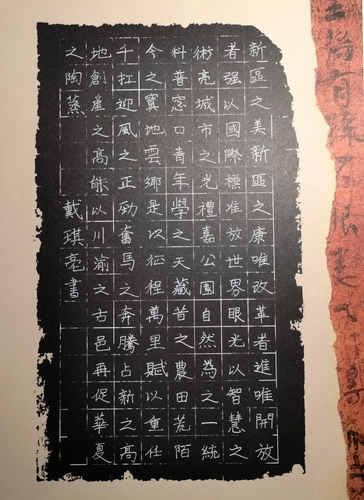 新區之美新區之康唯改革者進唯開放
者强以國際標准放世界眼光以智慧之
術亮城市之光禮嘉公園自然為之一統
科普窓口青年學之天藏昔之農田荒陌
今之寳地雲鄉是以征程萬里賦以重任
千扛迎風之正勁奮馬之奔騰占新之高
地創産之高能以川渝之古邑再促華夏
之陶蒸
戴琪亮書